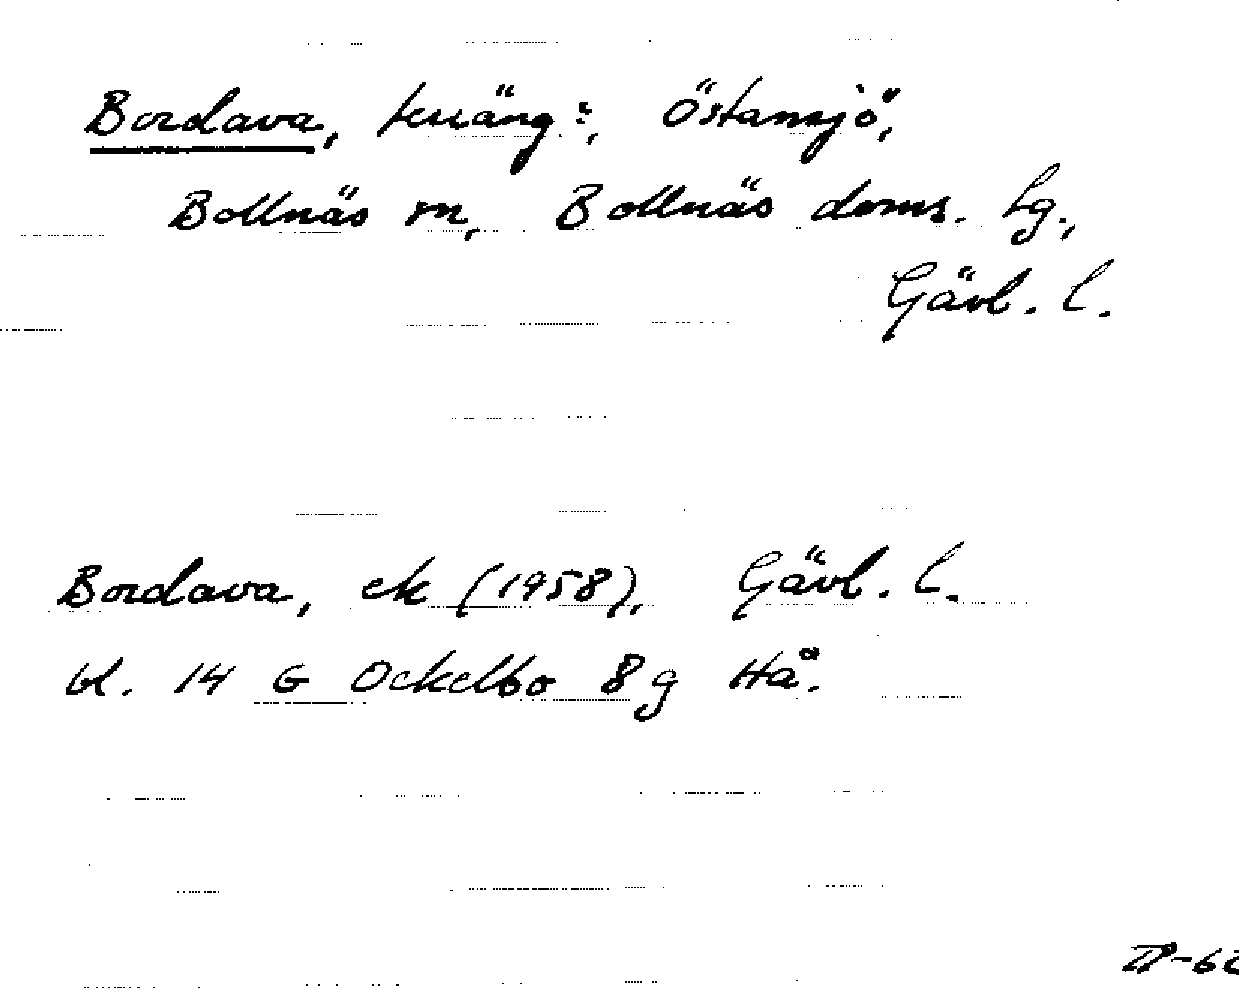 Bordava, terräng:, Östansjö,
Bollnäs sn, Bollnäs doms. hg.,
Gävl. l.
Bordava, ek (1958), Gävl. l.
bl. 14 G Ockelbo 8 g Hå.